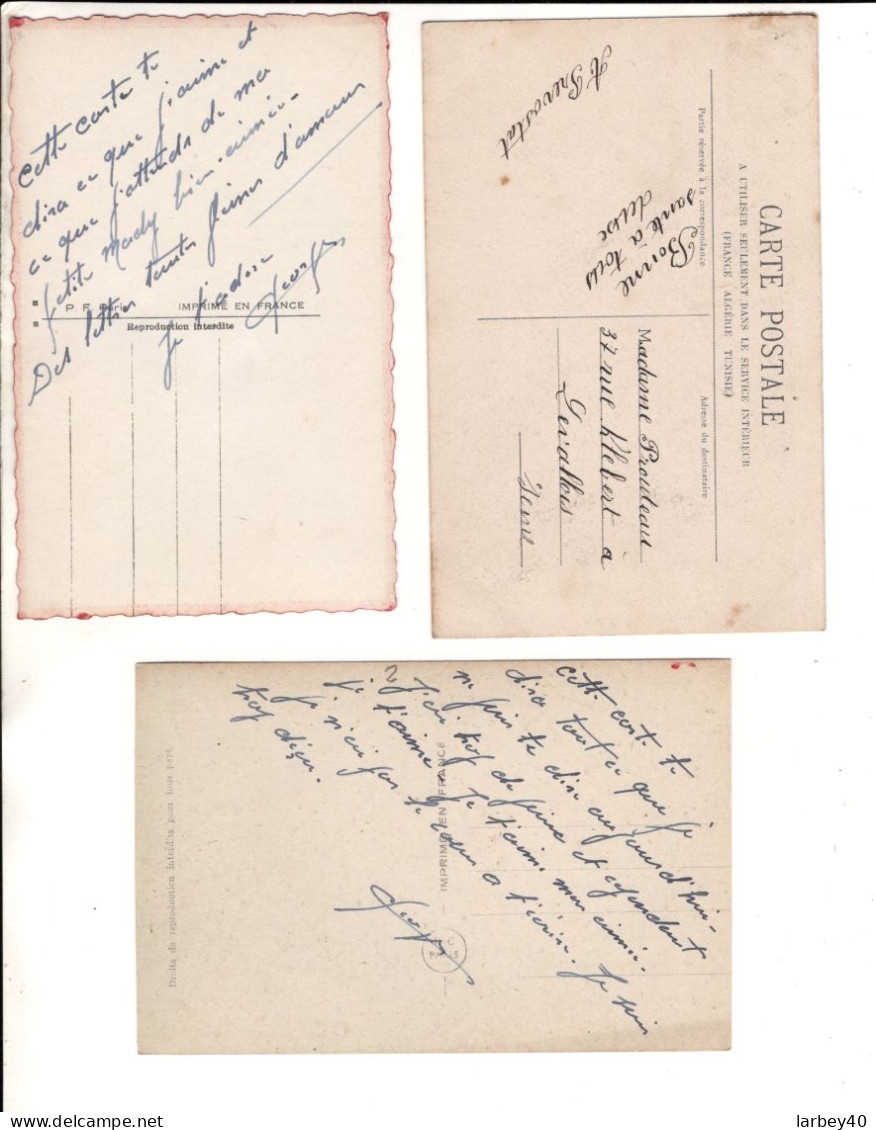 Cette carte te
dira ce que j'aime et
ce que j'attends de ma
petite Mady bien-aimée.
Des lettres toutes pleines d'amour
Je t'adore
Georges
P. F. Paris
IMPRIMÉ EN FRANCE
Reproduction interdite
CARTE POSTALE
A UTILISER SEULEMENT DANS LE SERVICE INTÉRIEUR
(FRANCE ALGÉRIE TUNISIE)
Partie réservée à la correspondance
Adresse du destinataire
Bonne
santé à tous
A Prevostat
Madame Prouteau
37 rue Klebert à
Levallois
Seine
Cette carte te
dira tout ce que je
ne puis te dire aujourd'hui.
J'ai trop de peine et cependant
je t'aime. Je t'aime mon aimée. Je suis
je n'ai pas le cœur à t'écrire.
trop déçu.
Georges
IMPRIMÉ EN FRANCE
Droits de reproduction interdits pour tous pays.
larbey40